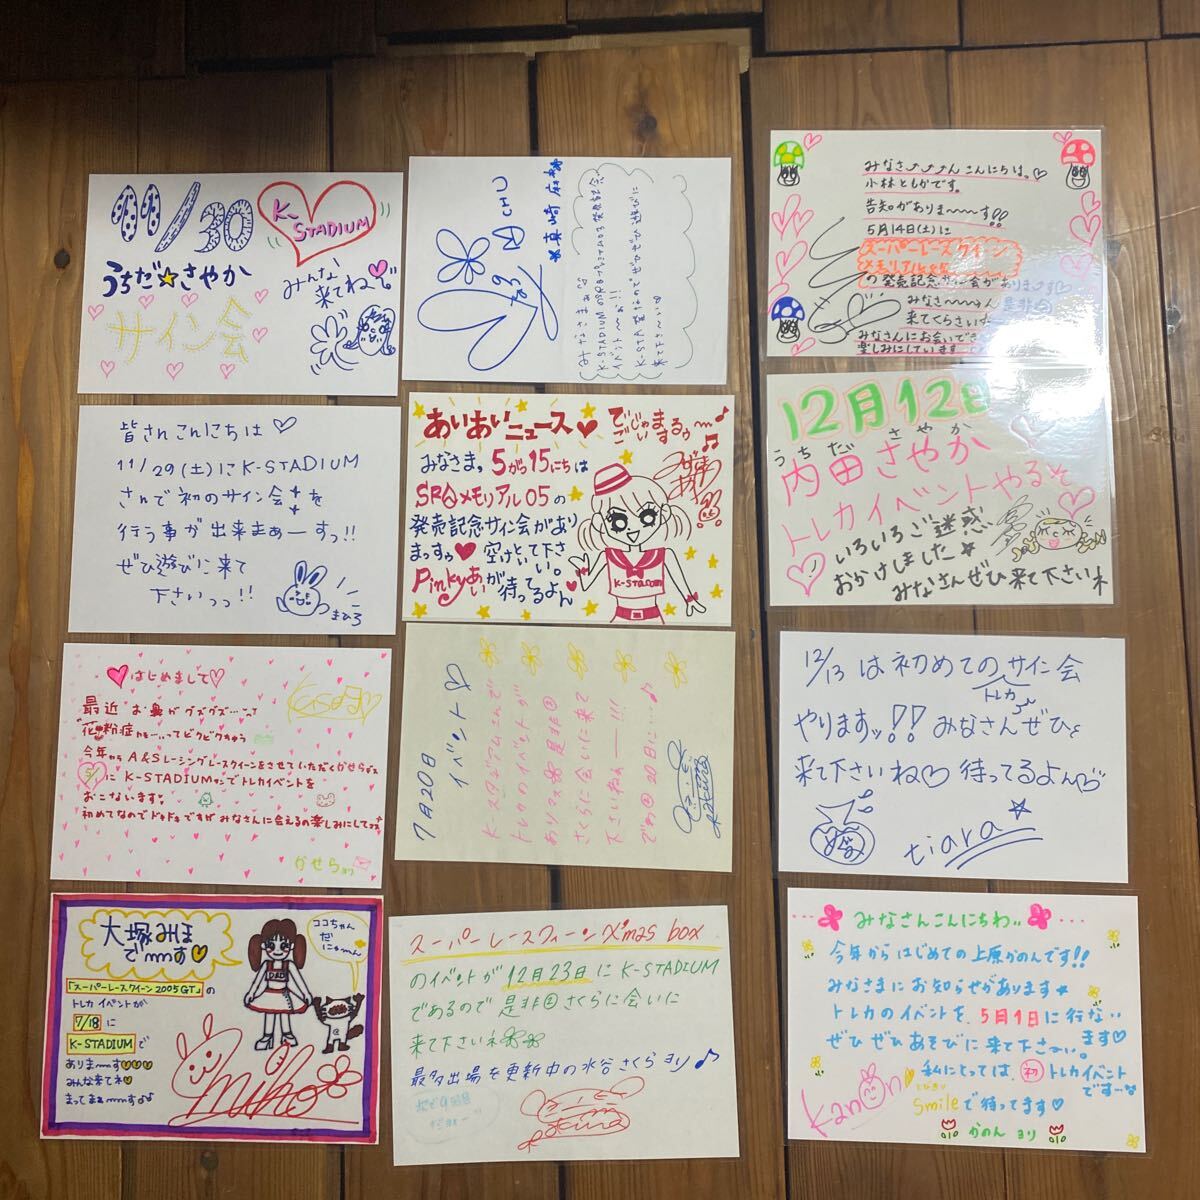 11/30
K-STADIUM
うちだ☆さやか
サイン会
みんな来てね♡
皆さんこんにちは♡
11/29(土)にK-STADIUM
さんで初のサイン会を
行う事が出来まぁーすっ!!
ぜひ遊びに来て
下さいっっ!!
まひろ
♡はじめまして♡
最近お鼻がグズグズ…って
花粉症かも…ってビクビクちゅう
今年から A&Sレーシングレースクイーンをさせていただくかせらです
5/1にK-STADIUMサンでトレカイベントを
おこないます。
初めてなのでドキドキですがみなさんに会えるの楽しみにしてます
かせらより
大塚みほ
でーーす♡
ココちゃん
だにゃーん
『スーパーレースクイーン2005GT』の
トレカイベントが
7/18に
K-STADIUMで
ありまーーす♡♡♡
みんな来てネ♡
まってまぁーーす♪♪
miho
CHU
真崎麻衣
みなさま☆
K-STADIUM
イベント
K-STA
来て下
あいあいニュース♥
でじゃまるぅー♪
ございますぅー♫
みなさま。5がつ15にちは
SRQメモリアル05の
発売記念サイン会があり
まっすっ♥空けといて下さいい。
Pinkyあいが待ってるよん
K-Sta.com
7月20日
イベント♡
K-スタジアムさんで
トレカのイベントが
あります是非
さくらに会いに来て
下さいねぇー!!!
では20日に…♪
スーパーレースクィーンX'mas box
のイベントが12月23日にK-STADIUM
であるので是非さくらに会いに
来て下さいネ
最多出場を更新中の水谷さくらヨリ♪
みなさ♪♪♪んこんにちは。♡
小林ともかです。
告知がありまーーーす!!
5月14日(土)に
スーパーレースクイーン
メモリアル05
の発売記念サイン会がありまーす♡
みなさーーーん是非
来てくださいね
みなさんにお会いでき
楽しみにしています
12月12日
うちださやか
内田さやか
トレカイベントやるぞ
いろいろご迷惑
おかけしました★
みなさんぜひ来て下さいネ
12/13は初めてのサイン会
トレカ
やりますッ!!みなさんぜひ
来て下さいね♡待ってるよん♡
tiara
みなさんこんにちわ
今年からはじめての上原かのんです!!
みなさまにお知らせがあります★
トレカのイベントを、5月1日に行ない
ます♡
ぜひぜひあそびに来て下さい。
私にとっては、初トレカイベント
です
とびきり
smileで待ってます♡
Kanon
かのんヨリ